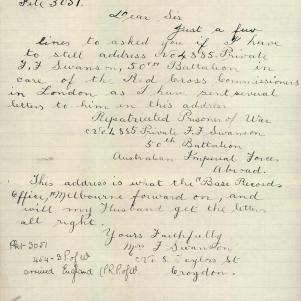 File 3051.
Dear Sir
Just a few
lines to asked you if I have
to still address No 4885 Private
F. F. Swanson, 50TH Battalion in
care of the Red Cross Commissioners
in London as I have sent several
letters to him in this address
Repatriated Prisoner of War
No 4885 Private F. F. Swanson
50th Battalion
Australian Imperial Forces
Abroad.
This address is what the "Base Records
Office," Melbourne forward on, and
will my Husband get the letters
all right.
Yours Faithfully
Mrs F Swanson
No 8 Taylors St
Croydon.
3051
464-3 P of W
arrived England P of W